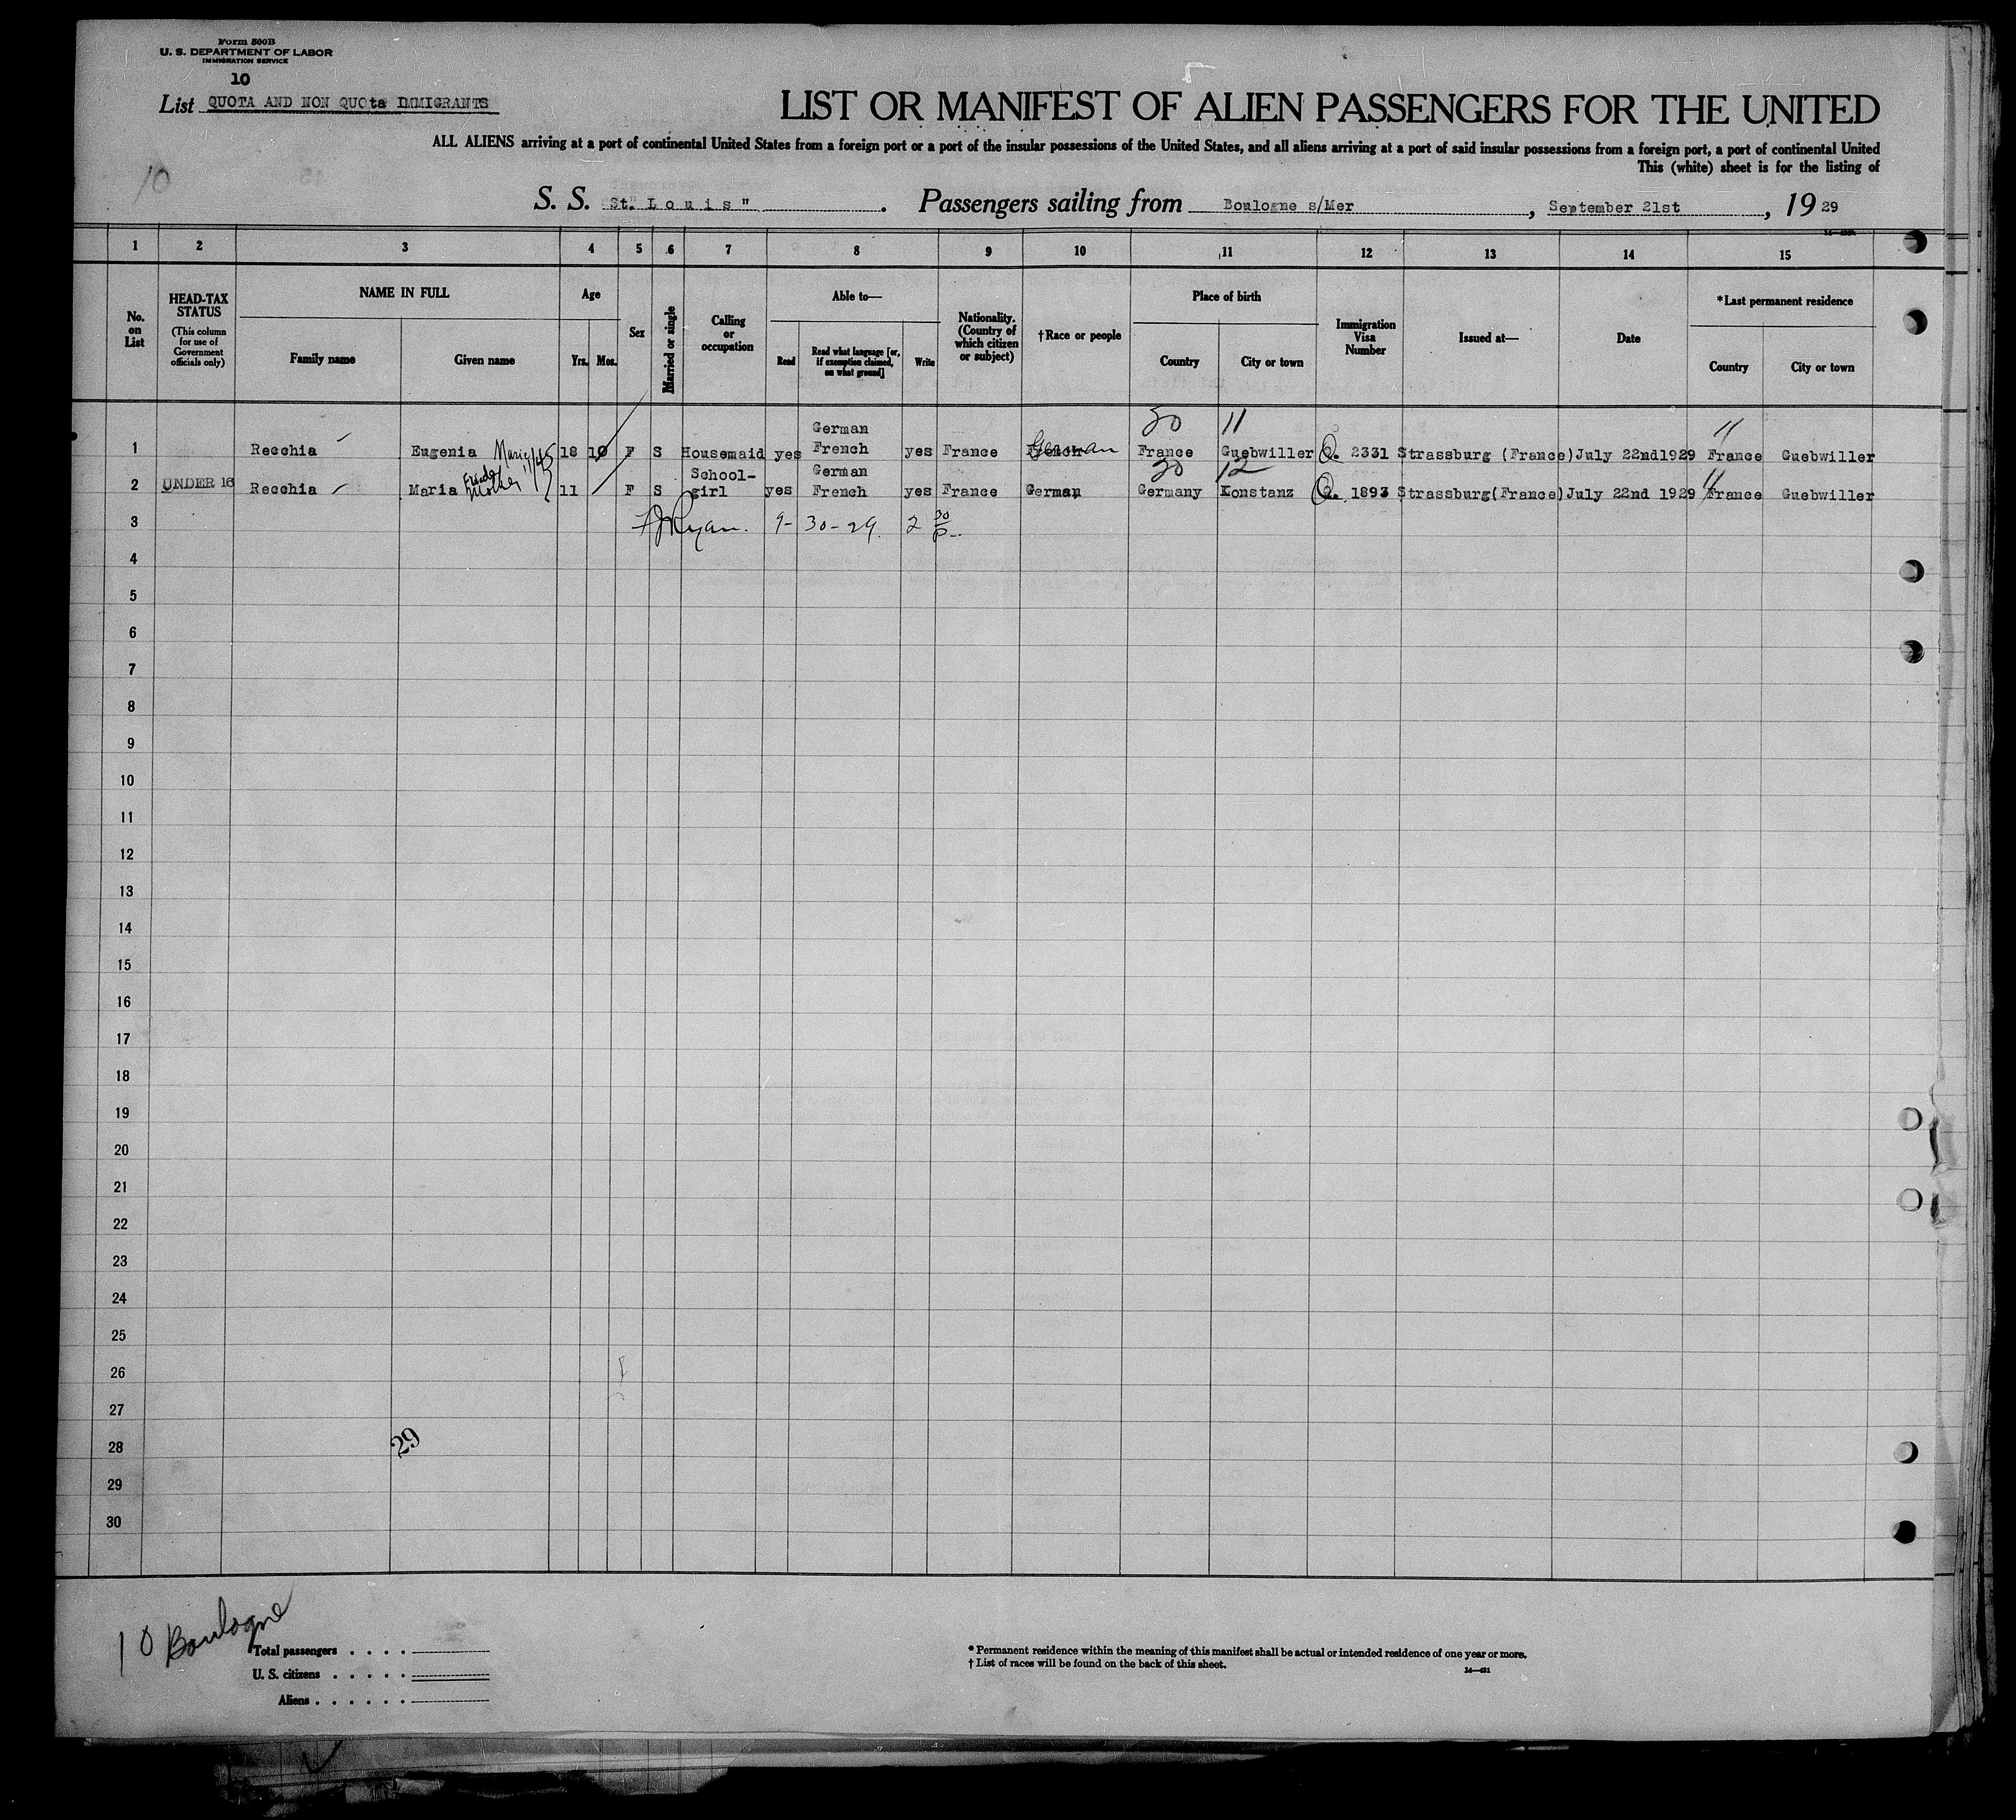 Form 500B
U. S. DEPARTMENT OF LABOR
IMMIGRATION SERVICE
10
List QUOTA AND NON QUOta IMMIGRANTS
LIST OR MANIFEST OF ALIEN PASSENGERS FOR THE UNITED
ALL ALIENS arriving at a port of continental United States from a foreign port or a port of the insular possessions of the United States, and all aliens arriving at a port of said insular possessions from a foreign port, a port of continental United
This (white) sheet is for the listing of
10
S. S. "St. Louis". Passengers sailing from Boulogne s/Mer, September 21st, 1929
1 2 3 4 5 6 7 8 9 10 11 12 13 14 15
No. on List
HEAD-TAX STATUS
(This column for use of Government officials only)
NAME IN FULL
Family name
Given name
Age
Yrs. Mos.
Sex
Married or single
Calling or occupation
Able to—
Read
Read what language [or, if exemption claimed, on what ground]
Write
Nationality. (Country of which citizen or subject)
†Race or people
Place of birth
Country
City or town
Immigration Visa Number
Issued at—
Date
*Last permanent residence
Country
City or town
30 11 11
1 Recchia Eugenia Marie 18 10 F S Housemaid yes German French yes France German France Guebwiller Q. 2331 Strassburg (France) July 22nd1929 France Guebwiller
30 12 11
2 UNDER 16 Recchia Maria 11 F S School-girl yes German French yes France German Germany Konstanz Q. 1893 Strassburg(France) July 22nd 1929 France Guebwiller
3 Ryan. 9-30-29. 2 30 P.
4
5
6
7
8
9
10
11
12
13
14
15
16
17
18
19
20
21
22
23
24
25
26
27
28
29
29
30
10 Boulogne
Total passengers . . . .
U. S. citizens . . . . .
Aliens . . . . . .
* Permanent residence within the meaning of this manifest shall be actual or intended residence of one year or more.
† List of races will be found on the back of this sheet.